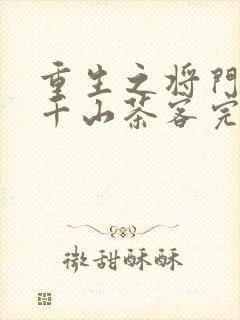 重生之将門
千山茶客完
微甜酥酥